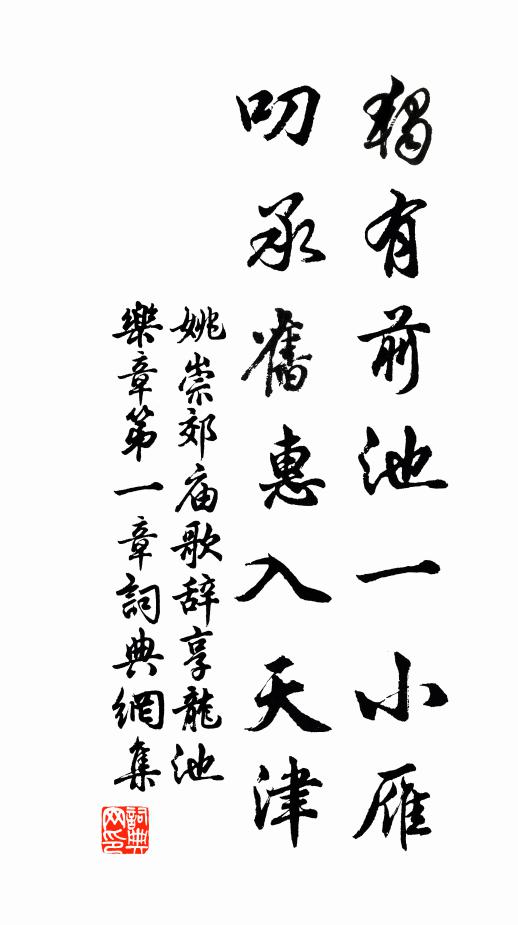 獨有前池一小雁
叨承舊惠入天津
姚崇郊庙歌辞享龍池
樂章第一章詞典網集
詞典網印